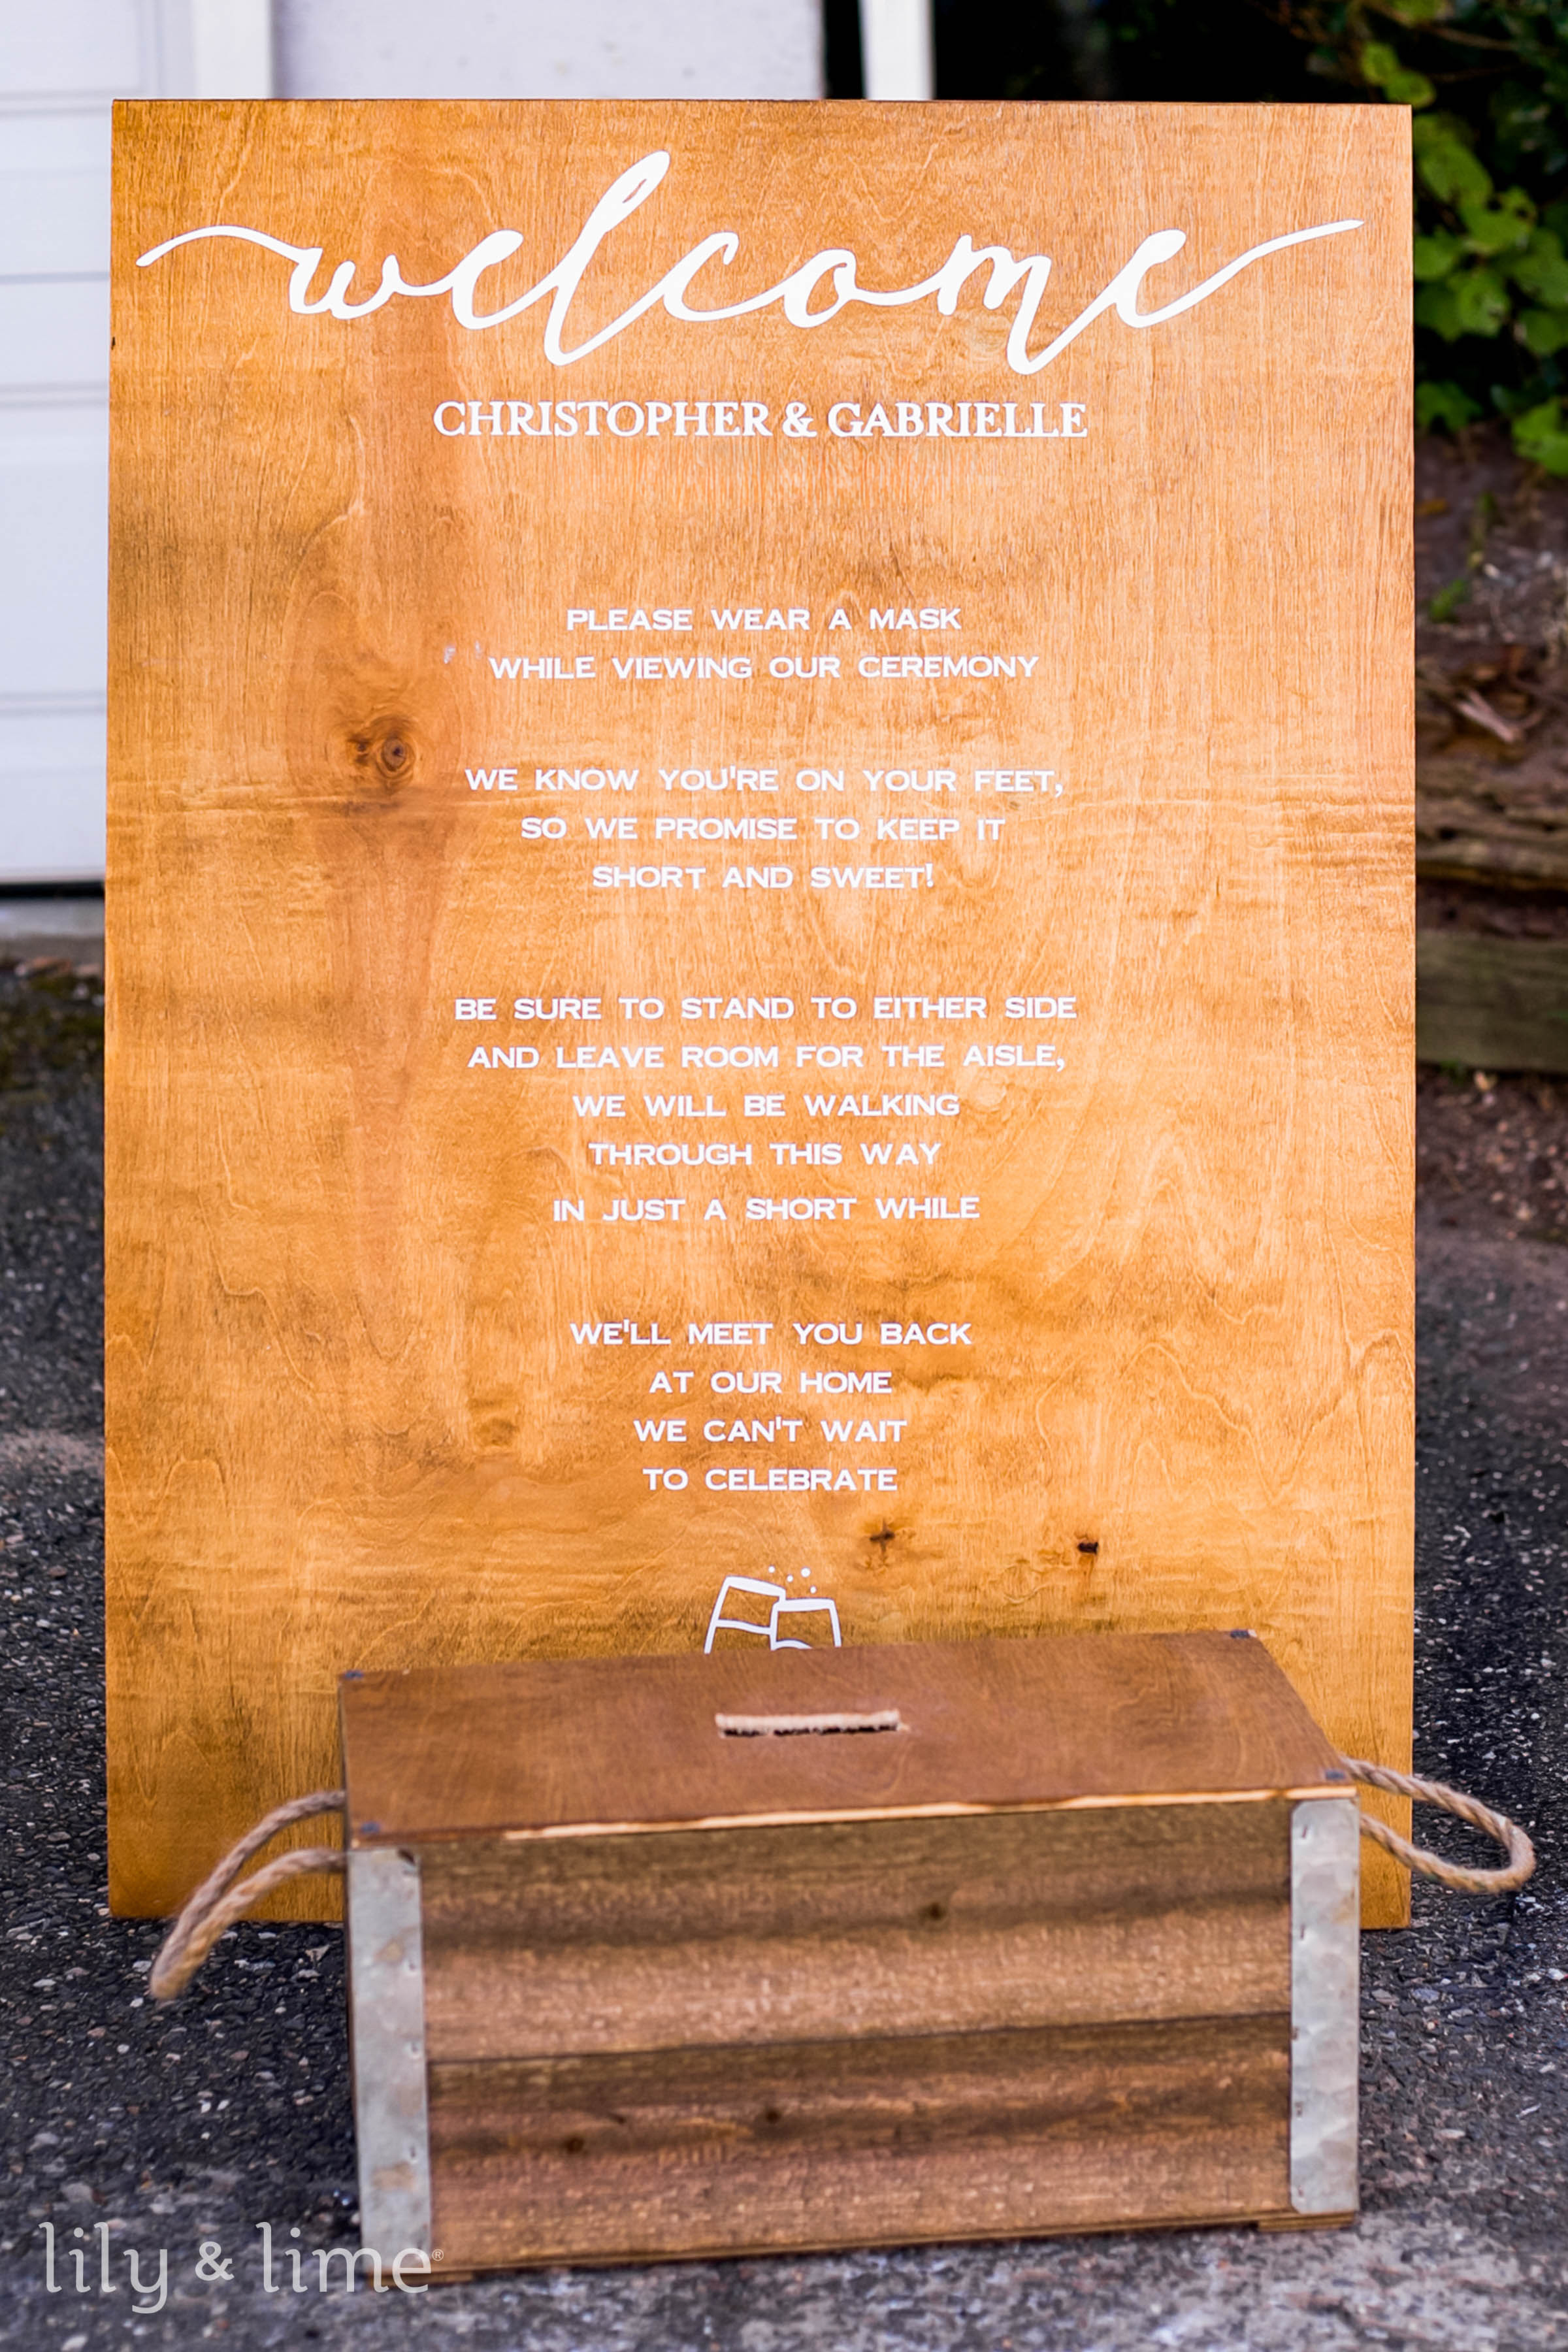 welcome
CHRISTOPHER & GABRIELLE
PLEASE WEAR A MASK
WHILE VIEWING OUR CEREMONY
WE KNOW YOU'RE ON YOUR FEET,
SO WE PROMISE TO KEEP IT
SHORT AND SWEET!
BE SURE TO STAND TO EITHER SIDE
AND LEAVE ROOM FOR THE AISLE,
WE WILL BE WALKING
THROUGH THIS WAY
IN JUST A SHORT WHILE
WE'LL MEET YOU BACK
AT OUR HOME
WE CAN'T WAIT
TO CELEBRATE
lily & lime®